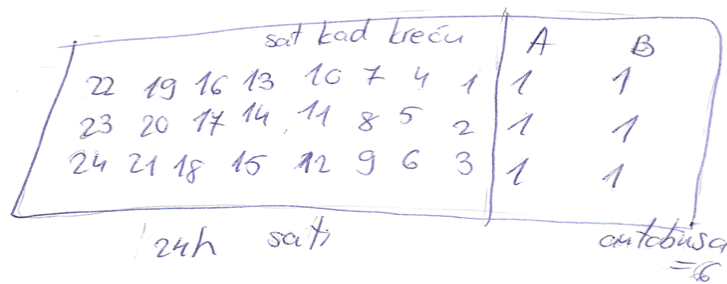 sat kad kreću A B
22 19 16 13 10 7 4 1 1 1
23 20 17 14 11 8 5 2 1 1
24 21 18 15 12 9 6 3 1 1
24h sati autobusa
=6